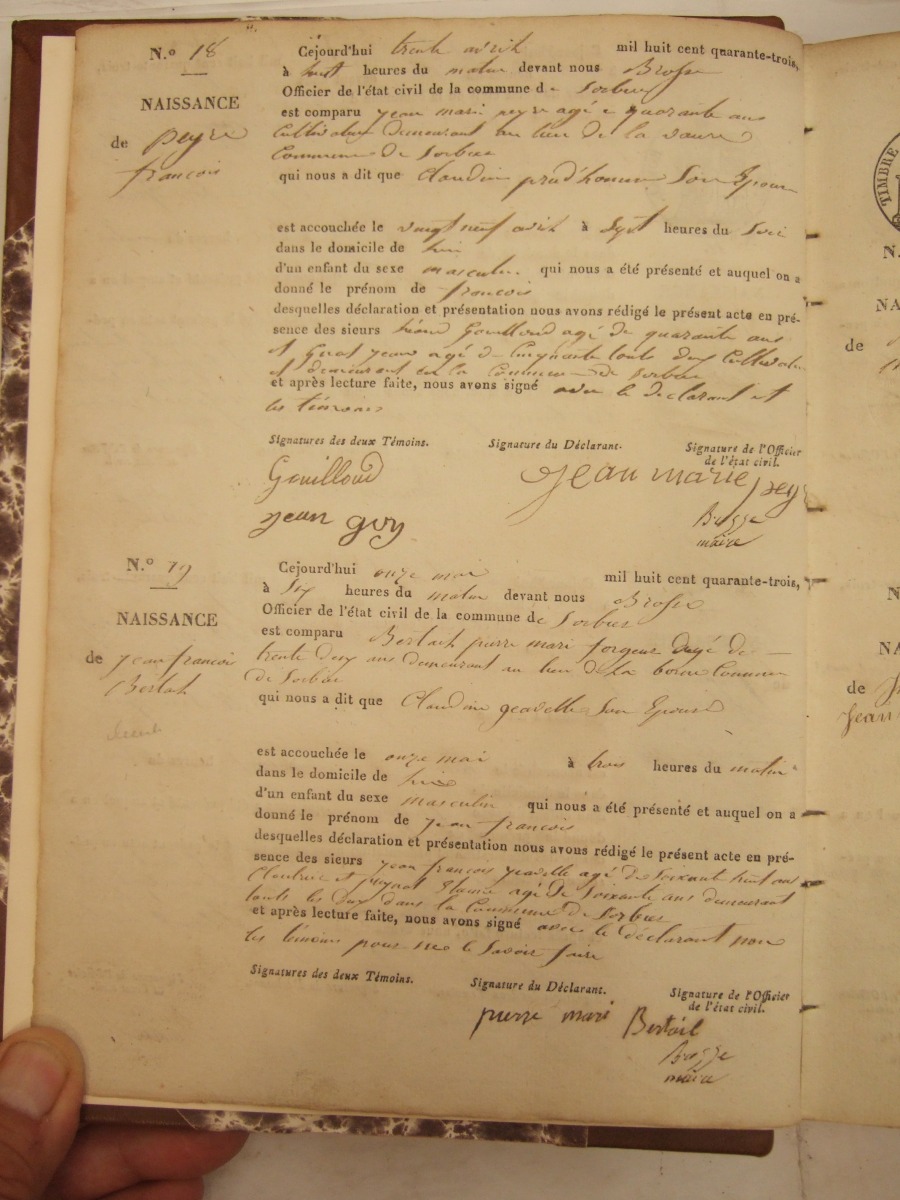 N.º 18
Cejourd'hui trente avril mil huit cent quarante-trois,
à huit heures du matin devant nous Brosse
NAISSANCE
Officier de l'état civil de la commune de Sorbier
est comparu jean mari peyre agé e quarante ans
de peyre
Cultivateur demeurant au lieu de la vaure
Commune de Sorbier
francois
qui nous a dit que Claudine prud'homme Son Epouse
est accouchée le vingt neuf avril à Sept heures du Soir
dans le domicile de lui
d'un enfant du sexe masculin qui nous a été présenté et auquel on a
donné le prénom de francois
desquelles déclaration et présentation nous avons rédigé le présent acte en pré-
sence des sieurs Gouilloud agé de quarante ans
et jean agé de Cinquante touts deux Cultivateurs
et demeurant en la Commune de Sorbier
et après lecture faite, nous avons signé avec le declarant et
les témoins
Signatures des deux Témoins.
Signature du Déclarant.
Signature de l'Officier
de l'état civil.
Gouilloud
jean marie pey
jean goy
maire
N.º 19
Cejourd'hui onze mai mil huit cent quarante-trois,
à Six heures du matin devant nous Brosse
NAISSANCE
Officier de l'état civil de la commune de Sorbier
est comparu Bertail pierre mari forgeur agé de
de jean francois
trente deux ans demeurant au lieu de la Commune
Bertail
de Sorbier
qui nous a dit que Claudine Son Epouse
est accouchée le onze mai à trois heures du matin
dans le domicile de lui
d'un enfant du sexe masculin qui nous a été présenté et auquel on a
donné le prénom de jean francois
desquelles déclaration et présentation nous avons rédigé le présent acte en pré-
sence des sieurs jean francois agé de Soixante huit ans
et agé de Soixante ans demeurant
touts les deux dans la Commune de Sorbier
et après lecture faite, nous avons signé avec le déclarant non
les témoins pour ne le Savoir faire
Signatures des deux Témoins.
Signature du Déclarant.
Signature de l'Officier
de l'état civil.
pierre mari Bertail
maire
TIMBRE
N.
NA
de
N
NA
de
jean